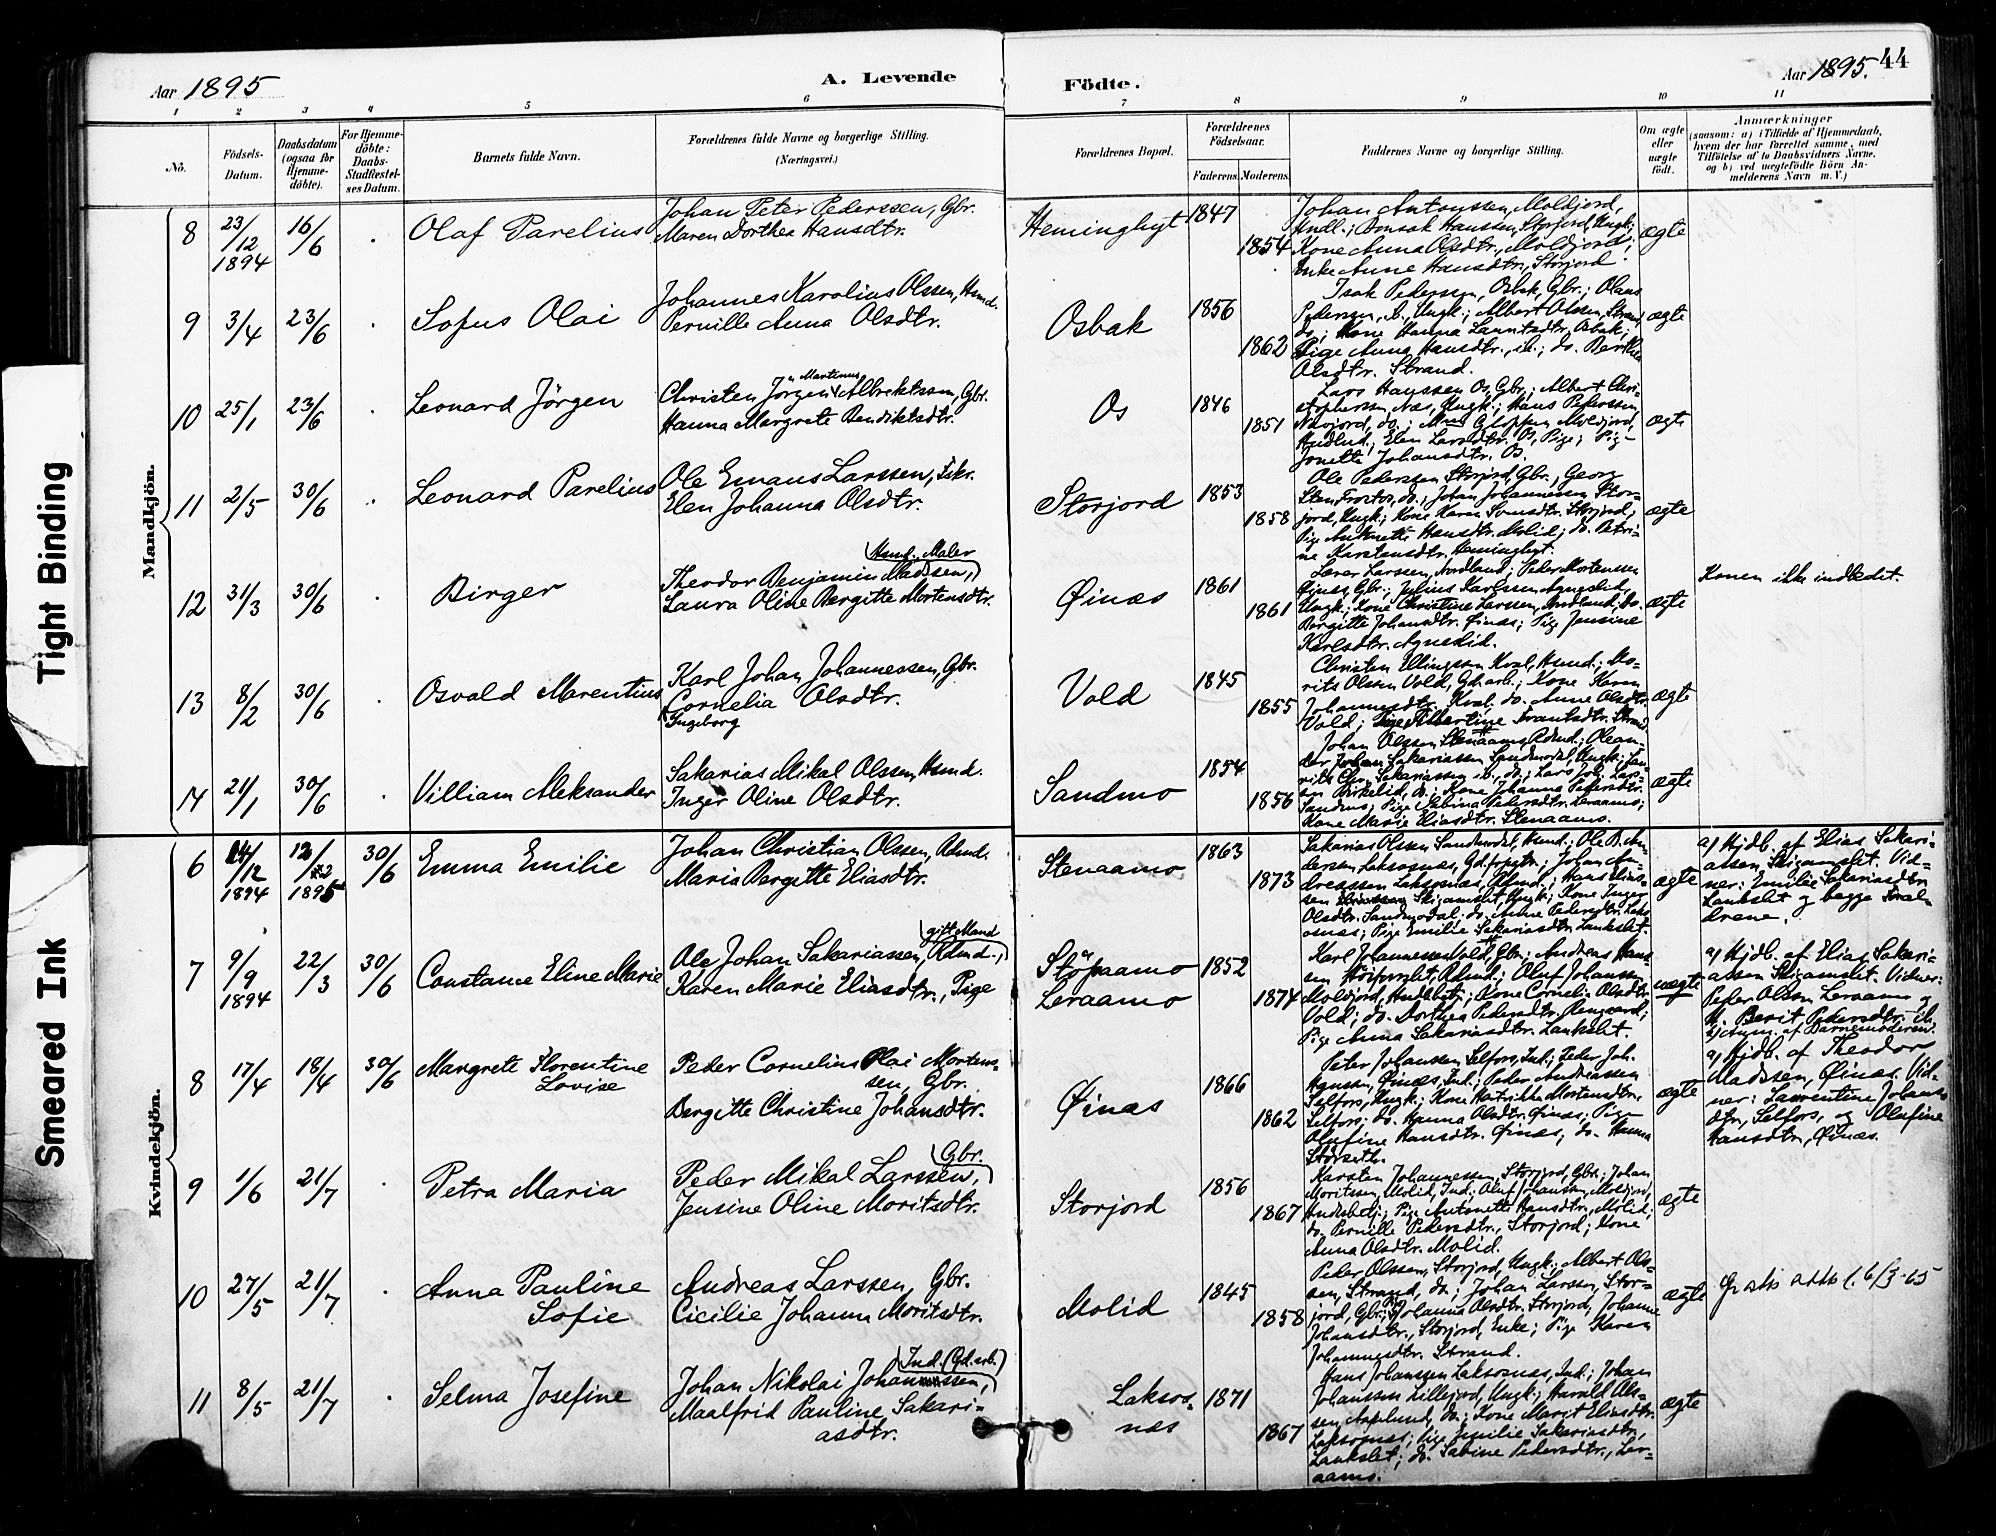 Tight Binding
Smeared Ink
Aar 1895
A. Levende
Födte.
Aar 1895.
44
1 2 3 4 5 6 7 8 9 10 11
No.
Födsels-
Datum.
Daabsdatum
(ogsaa för
Hjemme-
döbte).
For Hjemme-
döbte:
Daabs-
Stadfæstel-
ses Datum.
Barnets fulde Navn.
Forældrenes fulde Navne og borgerlige Stilling.
(Næringsvei.)
Forældrenes Bopæl.
Forældrenes
Födselsaar.
Faderens. Moderens.
Faddernes Navne og borgerlige Stilling.
Om ægte
eller
uægte
födt.
Anmærkninger
(saasom: a) i Tilfælde af Hjemmedaab,
hvem der har forrettet samme, med
Tilföielse af to Daabsvidners Navne,
og b) ved uægtefödte Börn An-
melderens Navn m. V.)
Mandkjön.
8
23/12
1894
16/6
Olaf Parelius
Johan Peter Pederssen, Gbr.
Maren Dorthea Hansdtr.
Heminghyt
1847
1854
Johan Antonssen, Moldjord,
Kone Anna Olsdtr., Moldjord;
Enke Anne Hansdtr., Storjord
ægte
9
3/4
23/6
Sofus Olai
Johannes Karolius Olssen, Hsmd.
Pernille Anna Olsdtr.
Osbak
1856
1862
Isak Pederssen, Osbak, Gbr.; Olaus
Pederssen, ib., Ungk.; Albert Olssen, Strand,
Pige Anna Hansdtr., ib.; do. Berthe
Olsdtr. Strand.
ægte
10
25/1
23/6
Leonard Jörgen
Christen Jörgen Martinus Albrektssen, Gbr.
Hanna Margrete Bendiktsdtr.
Os
1846
1851
Lars Hanssen Os, Gbr.; Albert Chri-
stophersen, Næs, Ungk.; Hans Pederssen,
Elen Larsdtr. Os, Pige; Pige
Jonette Johansdtr. Os.
ægte
11
2/5
30/6
Leonard Parelius
Ole Emaus Larssen, Fskr.
Elen Johanna Olsdtr.
Storjord
1853
1858
Ole Pederssen Storjord, Gbr., Georg
do.; Johan Johannessen Stor-
jord, Ungk.; Kone Karen Svensdtr. Storjord;
Hansdtr. Molid; do. Petri-
ne Karstensdtr. Heminghyt.
ægte
12
31/3
30/6
Birger
Hsmd. Maler
Theodor Benjamin Madssen,
Laura Oline Bergitte Mortensdtr.
Øinæs
1861
1861
Lærer Larssen, Nordland; Peder Mortenssen
Øinæs, Gbr.; Julius Karlssen Agneslid,
Ungk.; Kone Christine Larssen, Nordland; do.
Bergitte Johansdtr. Øinæs; Pige Jensine
Karlsdtr. Agneslid.
ægte
Konen ikke indledet.
13
8/2
30/6
Osvald Marentius
Karl Johan Johannessen, Gbr.
Cornelia Olsdtr.
Ingeborg
Vold
1845
1855
Christen Ellingssen Kval, Hsmd.; Mo-
rits Olssen Vold, Gd.arb.; Kone Karen
Johannesdtr. Kval, do. Anne Olsdtr.
Vold; Pige Albertine
ægte
14
21/1
30/6
Villiam Aleksander
Sakarias Mikal Olssen, Hsmd.
Inger Oline Olsdtr.
Sandmo
1854
1856
Johan Olssen Stenaamo, Rdmd.; Olean-
der Johan Sakariassen
Kone Johanna Pedersdtr.
Sandmo; Pige Sabina Pedersdtr. Leraamo;
Kone Marie Eliasdtr. Stenaamo.
ægte
Kvindekjön.
6
14/12
1894
12/2
1895
30/6
Emma Emilie
Johan Christian Olssen, Rdmd.
Maria Bergitte Eliasdtr.
Stenaamo
1863
1873
Sakarias Olssen Sandmodal, Hsmd.; Ole B. An-
derssen Laksosnæs; Johan An-
dreassen Laksosnæs, Rdmd.; Hans Elias-
sen Skigamslet, Ungk.; Kone Inger
Olsdtr. Sandmodal; do. Anne Pedersdtr. Laks-
osnæs; Pige Emilie Sakariasdtr. Lankslet.
ægte
a) Hjdb. af Elias Sakari-
assen Skigamslet. Vid-
ner: Emilie Sakariasdtr.
Lankslet og begge Foræl-
drene.
7
9/9
1894
22/3
30/6
Constance Eline Marie
gift Mand
Ole Johan Sakariassen, Rdmd.,
Karen Marie Eliasdtr., Pige
Leraamo
1852
1874
Karl Johannessen Vold, Gbr.; Andreas Hans-
sen, Rdmd.; Oluf Johanssen
Moldjord, Handelsbetj.; Kone Cornelia Olsdtr.
Vold; do. Dorthea Pedersdtr.
Pige Anna Sakariasdtr. Lankslet.
uægte
a) Hjdb. af Elias Sakari-
assen Skigamslet. Vidner:
Peder Olssen Leraamo og
Berit Pedersdtr. ib.
b) Anm. af Barnemoderen.
8
17/4
18/4
30/6
Margrete Florentine
Lovise
Peder Cornelius Olai Mortens-
sen, Gbr.
Bergitte Christine Johansdtr.
Øinæs
1866
1862
Peter Johanssen Selfors, Ind.; Peder Joh.
Øinæs, Ind.; Peder Andreassen
Selfors, Ungk.; Kone Mortensdtr.
Selfors; do. Hanna Olsdtr. Øinæs; Pige
Olufine Hansdtr. Øinæs; do. Hanna
ægte
a) Hjdb. af Theodor
Madssen, Øinæs. Vid-
ner: Laurentine Johans-
dtr., Selfors, og Olufine
Hansdtr., Øinæs.
9
1/6
21/7
Petra Maria
Gbr.
Peder Mikal Larssen,
Jensine Oline Moritsdtr.
Storjord
1856
1867
Karsten Johannessen, Storjord, Gbr.; Johan
Moritssen, Molid, Ind.; Oluf Johanssen, Moldjord,
Handelsbetj.; Pige Antonette Hansdtr., Molid;
do. Pernille Pedersdtr., Storjord; Kone
Anna Olsdtr. Molid.
ægte
10
27/5
21/7
Anna Pauline
Sofie
Andreas Larssen, Gbr.
Cicilie Johanna Moritsdtr.
Molid
1845
1858
Peder Olssen, Storjord, Ungk.; Albert Ols-
sen, Strand, do.; Johan Larssen, Stor-
jord, Gbr.; Johanna Olsdtr. Storjord, Johanne
Johansdtr., Storjord, Enke; Pige Karen
Johannesdtr. Strand.
ægte
11
8/5
21/7
Selma Josefine
Ind. (Gd.arb.)
Johan Nikolai Johanssen,
Maalfrid Pauline Sakari-
asdtr.
Laksos-
næs
1871
1867
Hans Johanssen Laksosnæs, Ind.; Johan
Johanssen Lillejord, Ungk.; Harald Ols-
sen Asplund, do.; Kone Marit Eliasdtr.
Laksosnæs; Pige Emilie Sakariasdtr.,
Lankslet; do. Sabine Pedersdtr., Ler-
aamo.
ægte